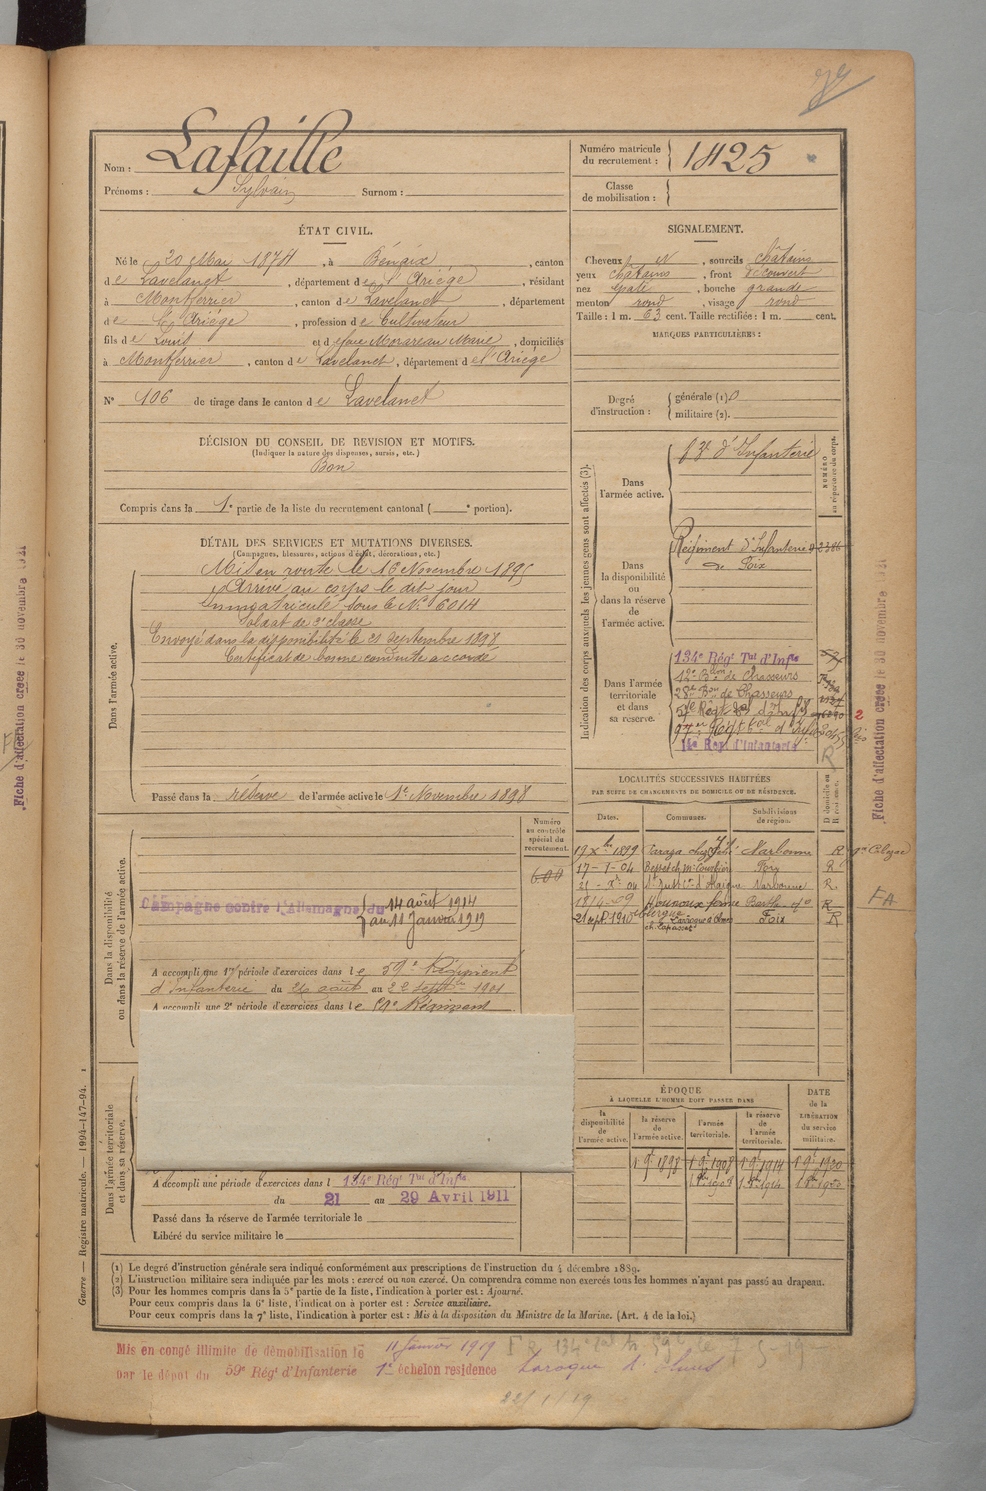 Nom : Lafaille
Prénoms : Sylvain Surnom :
Numéro matricule du recrutement : 1425
Classe de mobilisation :
ÉTAT CIVIL.
Né le 20 Mai 1874, à Bénaix, canton
de Lavelanet, département de l'Ariège, résidant
à Montferrier, canton de Lavelanet, département
de l'Ariège, profession de Cultivateur
fils de Louis et de Marie, domiciliés
à Montferrier, canton de Lavelanet, département de l'Ariège
N° 106 de tirage dans le canton de Lavelanet
SIGNALEMENT.
Cheveux N, sourcils châtains
yeux châtains, front découvert
nez épaté, bouche grande
menton rond, visage rond
Taille : 1 m. 63 cent. Taille rectifiée : 1 m. cent.
MARQUES PARTICULIÈRES :
Degré d'instruction : générale (1) 0
militaire (2).
DÉCISION DU CONSEIL DE REVISION ET MOTIFS.
(Indiquer la nature des dispenses, sursis, etc.)
Bon
Compris dans la 1e partie de la liste du recrutement cantonal ( e portion).
DÉTAIL DES SERVICES ET MUTATIONS DIVERSES.
(Campagnes, blessures, actions d'éclat, décorations, etc.)
Dans l'armée active.
Mis en route le 16 Novembre 1895
Arrivé au corps le dit jour
Immatriculé sous le N° 6014
Soldat de 2e classe
Envoyé dans la disponibilité le 21 septembre 1898
Certificat de bonne conduite accordé
Passé dans la réserve de l'armée active le 1er Novembre 1898
Indication des corps auxquels les jeunes gens sont affectés (3).
NUMÉRO au répertoire du corps.
Dans l'armée active.
d'Infanterie
Dans la disponibilité ou dans la réserve de l'armée active.
Régiment d'Infanterie
de Foix
Dans l'armée territoriale et dans sa réserve.
134e Régt Tal d'Infie
12e Bon de Chasseurs
28e Bon de Chasseurs
14e Reg. d'Infanterie
R
LOCALITÉS SUCCESSIVES HABITÉES
PAR SUITE DE CHANGEMENTS DE DOMICILE OU DE RÉSIDENCE.
Dates. Communes. Subdivisions de région. D domicile ou R résidence.
1899 Narbonne R
17-1-04 Foix R
21 04 Narbonne R
R
21 sept. 1910 Laroque d'Olmes Foix R
ch. Lapasset
FA
Dans la disponibilité ou dans la réserve de l'armée active.
Numéro au contrôle spécial du recrutement.
600
Campagne contre l'Allemagne du 14 août 1914
au 11 Janvier 1919
A accompli une 1re période d'exercices dans le 59e Régiment
d'Infanterie du 26 août au 22 septbre 1901
A accompli une 2e période d'exercices dans le 59e Régiment
Dans l'armée territoriale et dans sa réserve.
A accompli une période d'exercices dans l 134e Régt Tal d'Infie
du 21 au 29 Avril 1911
Passé dans la réserve de l'armée territoriale le
Libéré du service militaire le
ÉPOQUE
À LAQUELLE L'HOMME DOIT PASSER DANS
la disponibilité de l'armée active. la réserve de l'armée active. l'armée territoriale. la réserve de l'armée territoriale.
DATE de la LIBÉRATION du service militaire.
1 9e 1898 1 9e 1908 1 9e 1914 1 9e 1920
(1) Le degré d'instruction générale sera indiqué conformément aux prescriptions de l'instruction du 4 décembre 1889.
(2) L'instruction militaire sera indiquée par les mots : exercé ou non exercé. On comprendra comme non exercés tous les hommes n'ayant pas passé au drapeau.
(3) Pour les hommes compris dans la 5e partie de la liste, l'indication à porter est : Ajourné.
Pour ceux compris dans la 6e liste, l'indication à porter est : Service auxiliaire.
Pour ceux compris dans la 7e liste, l'indication à porter est : Mis à la disposition du Ministre de la Marine. (Art. 4 de la loi.)
Guerre — Registre matricule. — 1994-147-94.
Mis en congé illimité de démobilisation le 11 Janvier 1919
par le dépôt du 59e Régt d'Infanterie 1er échelon residence Laroque d'Olmes
22/1/19
Fiche d'affectation créée le 30 novembre 1921
Fiche d'affectation créée le 30 novembre 1921